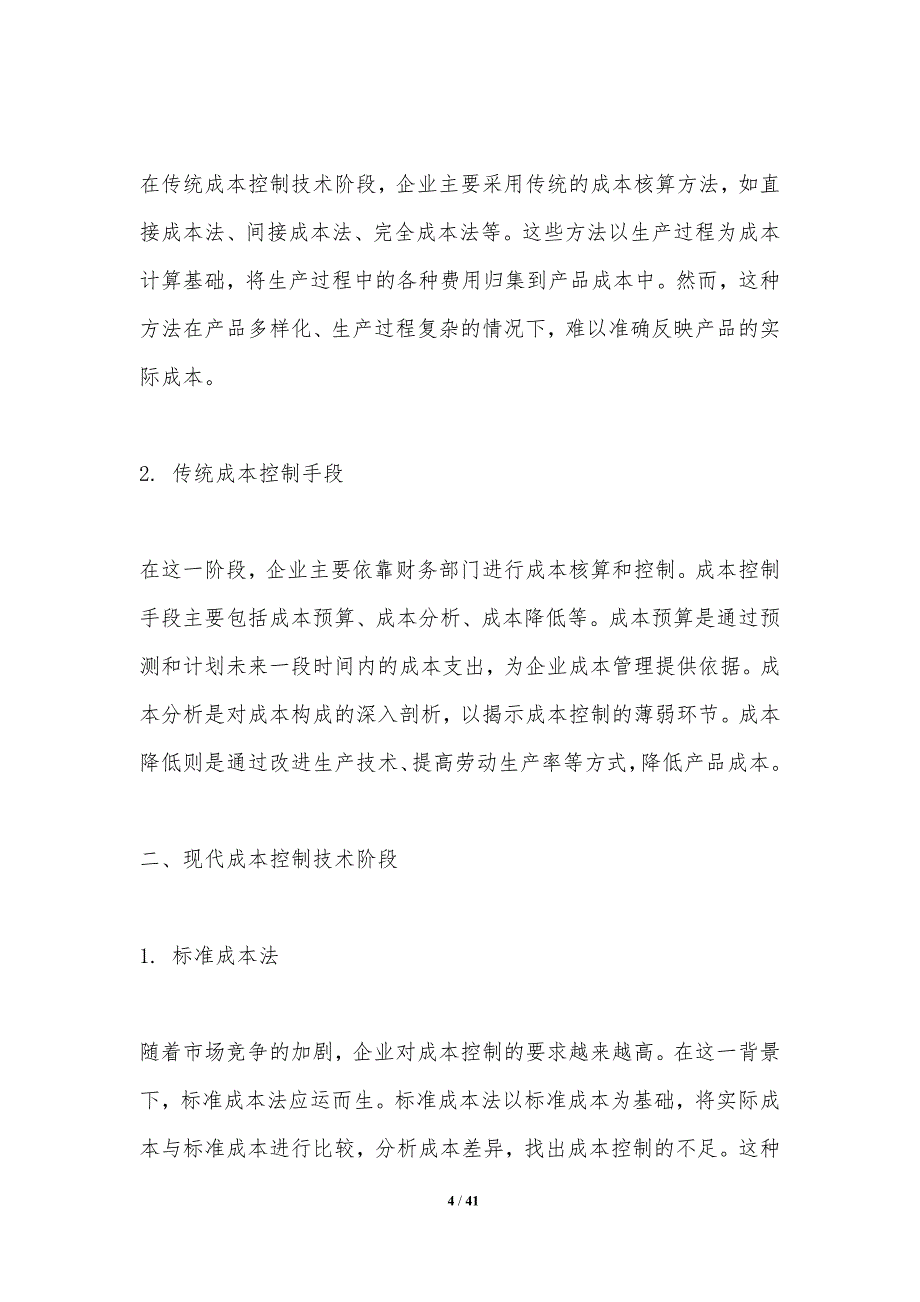 在传统成本控制技术阶段，企业主要采用传统的成本核算方法，如直
接成本法、间接成本法、完全成本法等。这些方法以生产过程为成本
计算基础，将生产过程中的各种费用归集到产品成本中。然而，这种
方法在产品多样化、生产过程复杂的情况下，难以准确反映产品的实
际成本。
2. 传统成本控制手段
在这一阶段，企业主要依靠财务部门进行成本核算和控制。成本控制
手段主要包括成本预算、成本分析、成本降低等。成本预算是通过预
测和计划未来一段时间内的成本支出，为企业成本管理提供依据。成
本分析是对成本构成的深入剖析，以揭示成本控制的薄弱环节。成本
降低则是通过改进生产技术、提高劳动生产率等方式，降低产品成本。
二、现代成本控制技术阶段
1. 标准成本法
随着市场竞争的加剧，企业对成本控制的要求越来越高。在这一背景
下，标准成本法应运而生。标准成本法以标准成本为基础，将实际成
本与标准成本进行比较，分析成本差异，找出成本控制的不足。这种
4 / 41